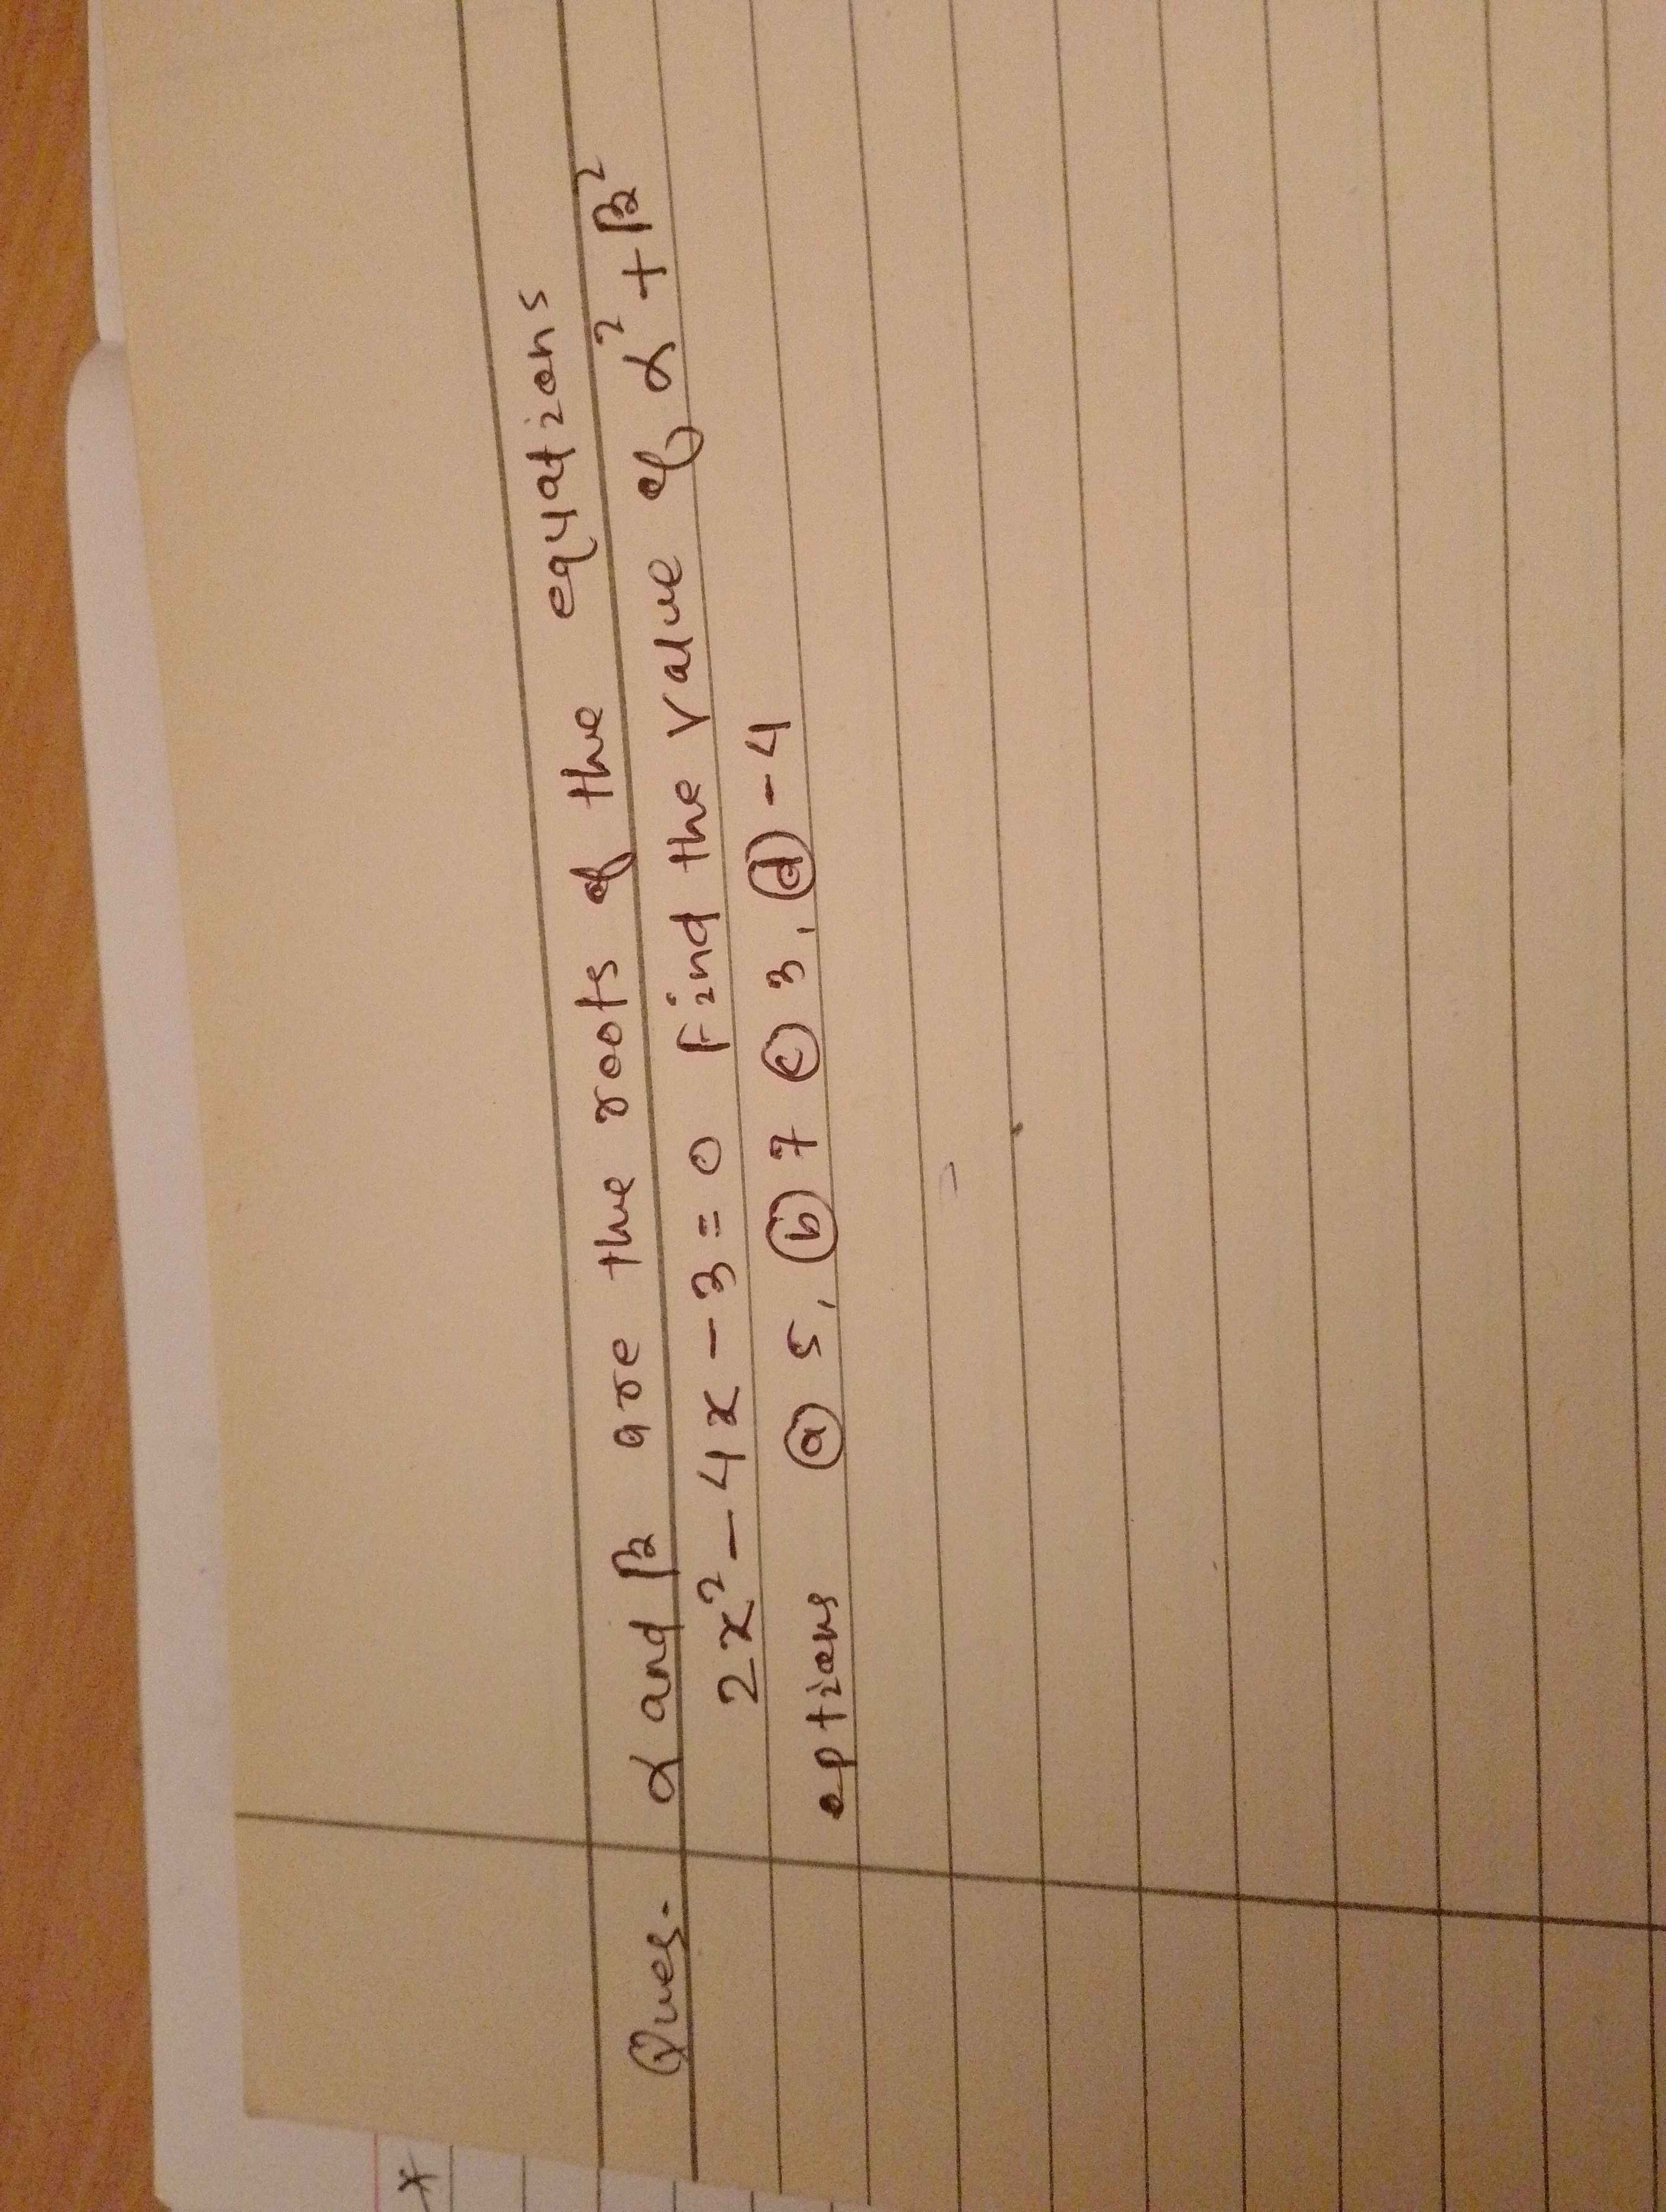 Ques. α and β are the roots of the equations
2x² - 4x - 3 = 0 Find the value of α² + β²
options ⓐ 5, ⓑ 7 ⓒ 3, ⓓ -4
x